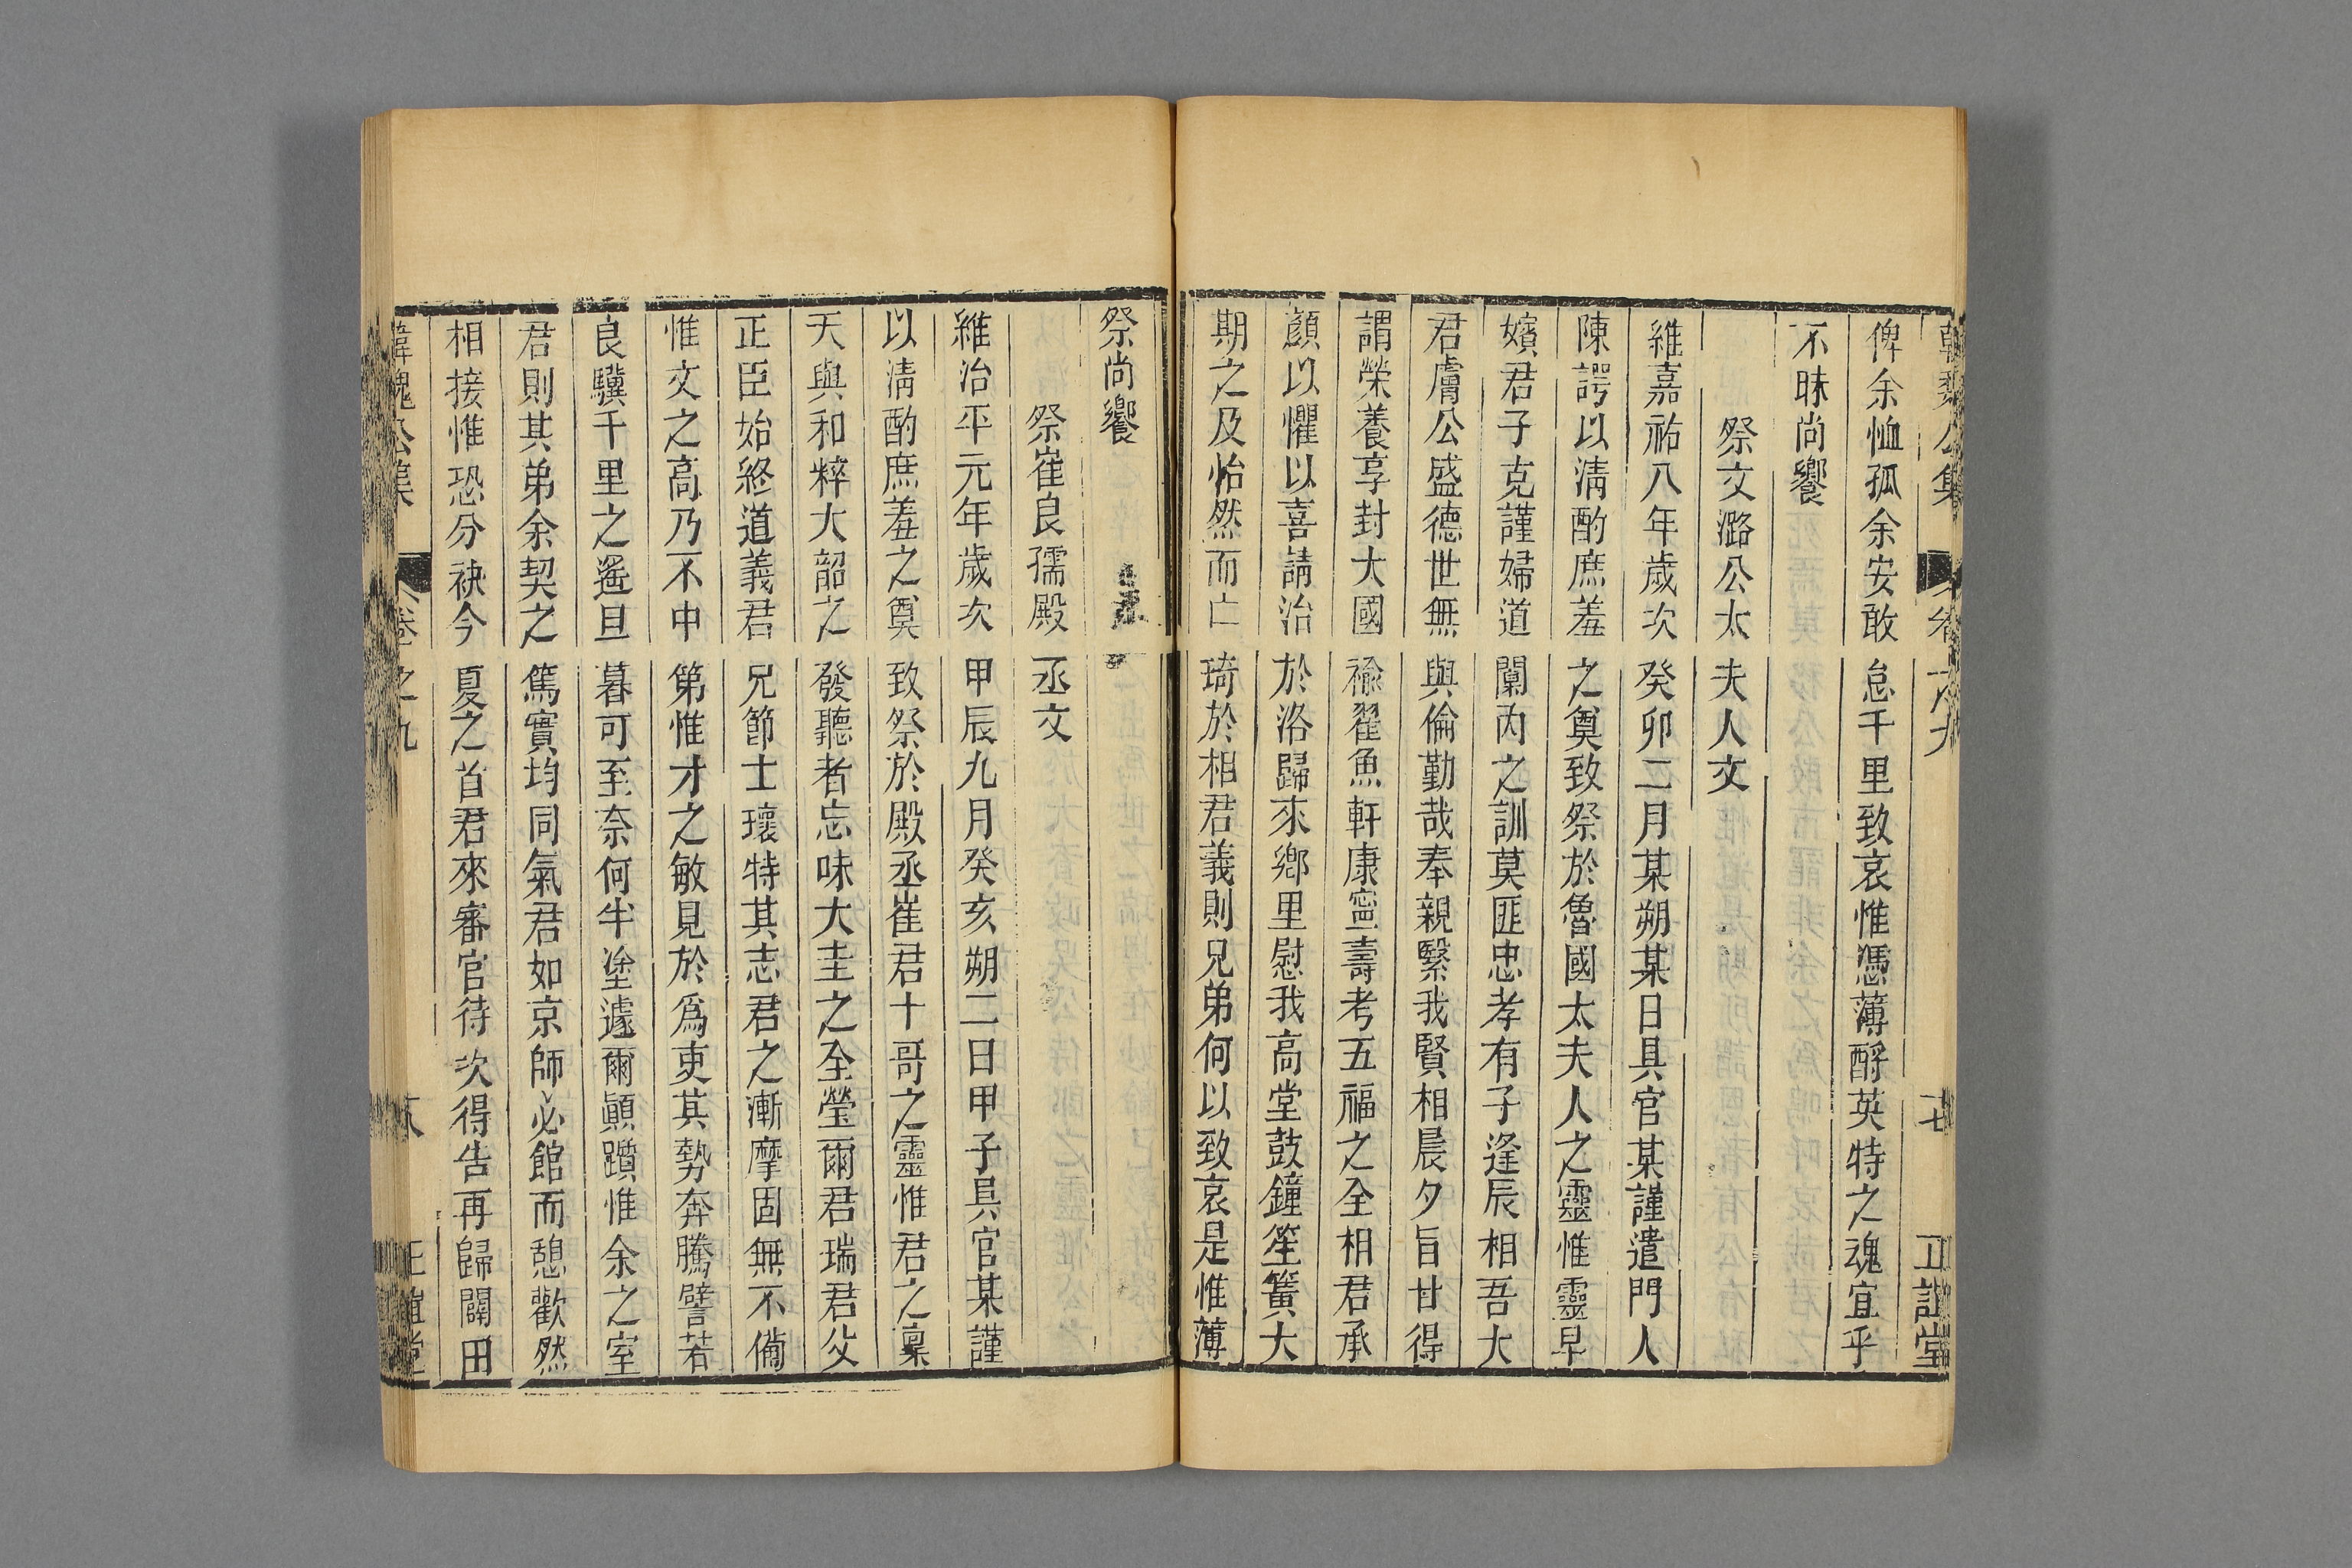 俾余恤孤余安敢怠千里致哀惟憑薄酹英特之魂宜乎
不昧尚饗
祭文潞公太夫人文
維嘉祐八年歲次癸卯二月某朔某日具官某謹遣門人
陳諤以淸酌庶羞之奠致祭於魯國太夫人之靈惟靈早
嬪君子克謹婦道閫內之訓莫匪忠孝有子逢辰相吾大
君膚公盛德世無與倫勤哉奉親繄我賢相晨夕旨甘得
謂榮養享封大國褕翟魚軒康寧壽考五福之全相君承
顏以懼以喜請治於洛歸來鄉里慰我高堂鼓鐘笙簧大
期之及怡然而亡琦於相君義則兄弟何以致哀是惟薄
祭尚饗
祭崔良孺殿丞文
維治平元年歲次甲辰九月癸亥朔二日甲子具官某謹
以淸酌庶羞之奠致祭於殿丞崔君十哥之靈惟君之稟
天與和粹大韶之發聽者忘味大圭之全瑩爾君瑞君父
正臣始終道義君兄節士瓌特其志君之漸摩固無不備
惟文之高乃不中第惟才之敏見於爲吏其勢奔騰譬若
良驥千里之遙旦暮可至奈何半塗遽爾顚躓惟余之室
君則其弟余契之篤實均同氣君如京師必館而憩歡然
相接惟恐分袂今夏之首君來審官待次得告再歸關田
韓魏公集 卷之九 六 正誼堂